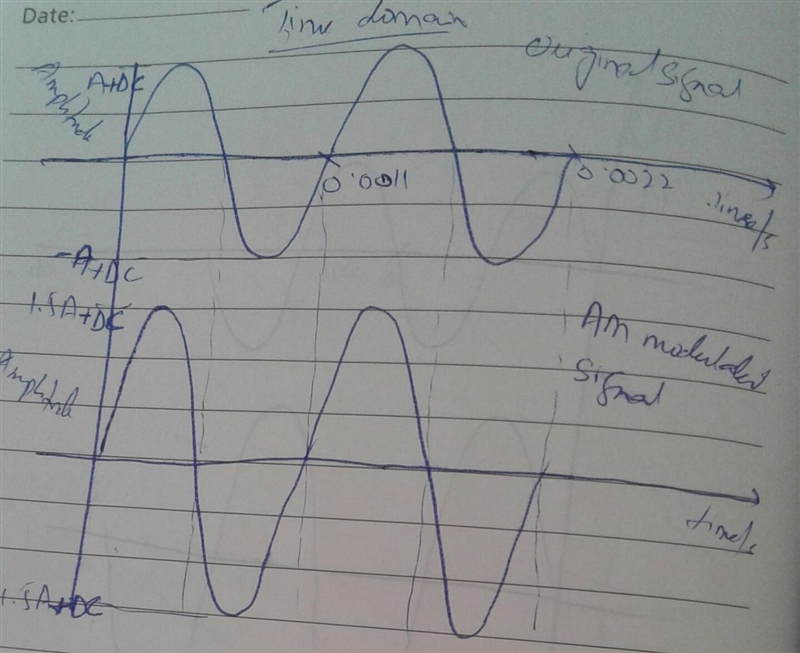 Date:
Time domain
Original Signal
A+DC
Amplitude
0.0011
0.0022
time/s
-A+DC
1.5A+DC
AM modulated
Signal
Amplitude
time/s
1.5A+DC